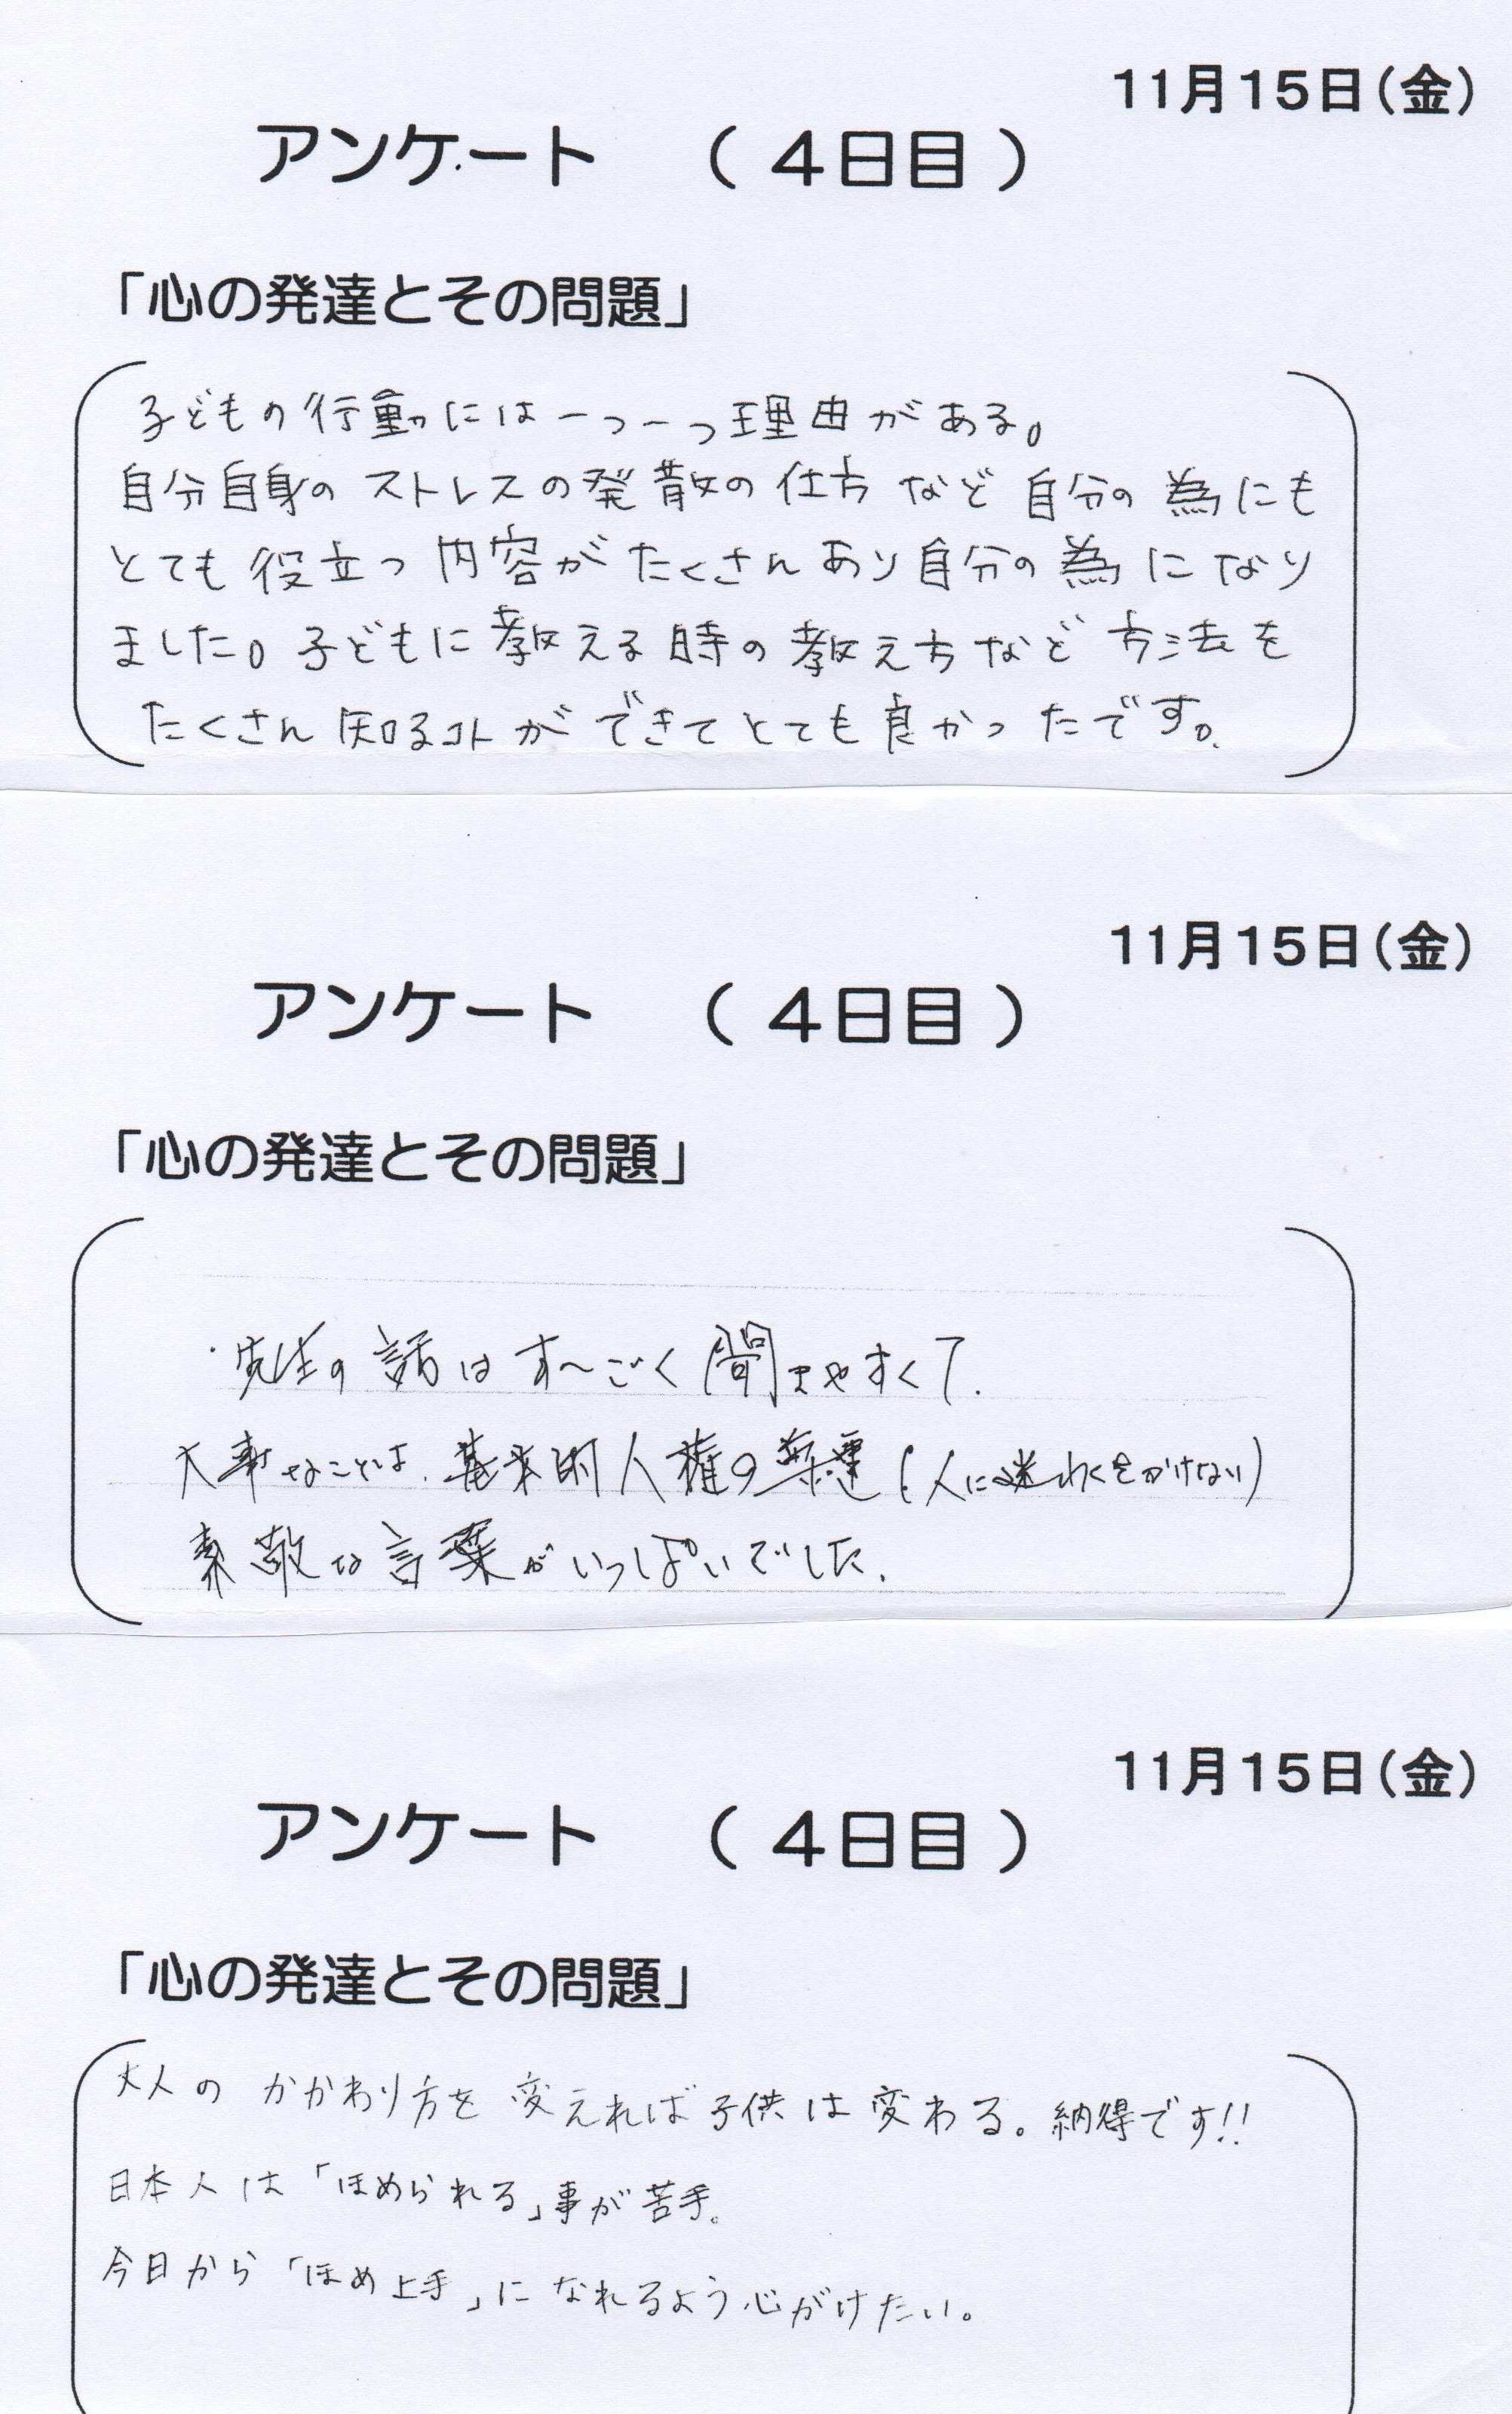 11月15日(金)
アンケート （ 4日目 ）
「心の発達とその問題」
子どもの行動には一つ一つ理由がある。
自分自身のストレスの発散の仕方など自分の為にも
とても役立つ内容がたくさんあり自分の為になり
ました。子どもに教える時の教え方など方法を
たくさん知るコトができてとても良かったです。
11月15日(金)
アンケート （ 4日目 ）
「心の発達とその問題」
・先生の話はす〜ごく聞きやすくて.
大事なことは、基本的人権の（人に迷わくをかけない）
素敵な言葉がいっぱいでした.
11月15日(金)
アンケート （ 4日目 ）
「心の発達とその問題」
大人のかかわり方を変えれば子供は変わる。納得です!!
日本人は「ほめられる」事が苦手。
今日から「ほめ上手」になれるよう心がけたい。